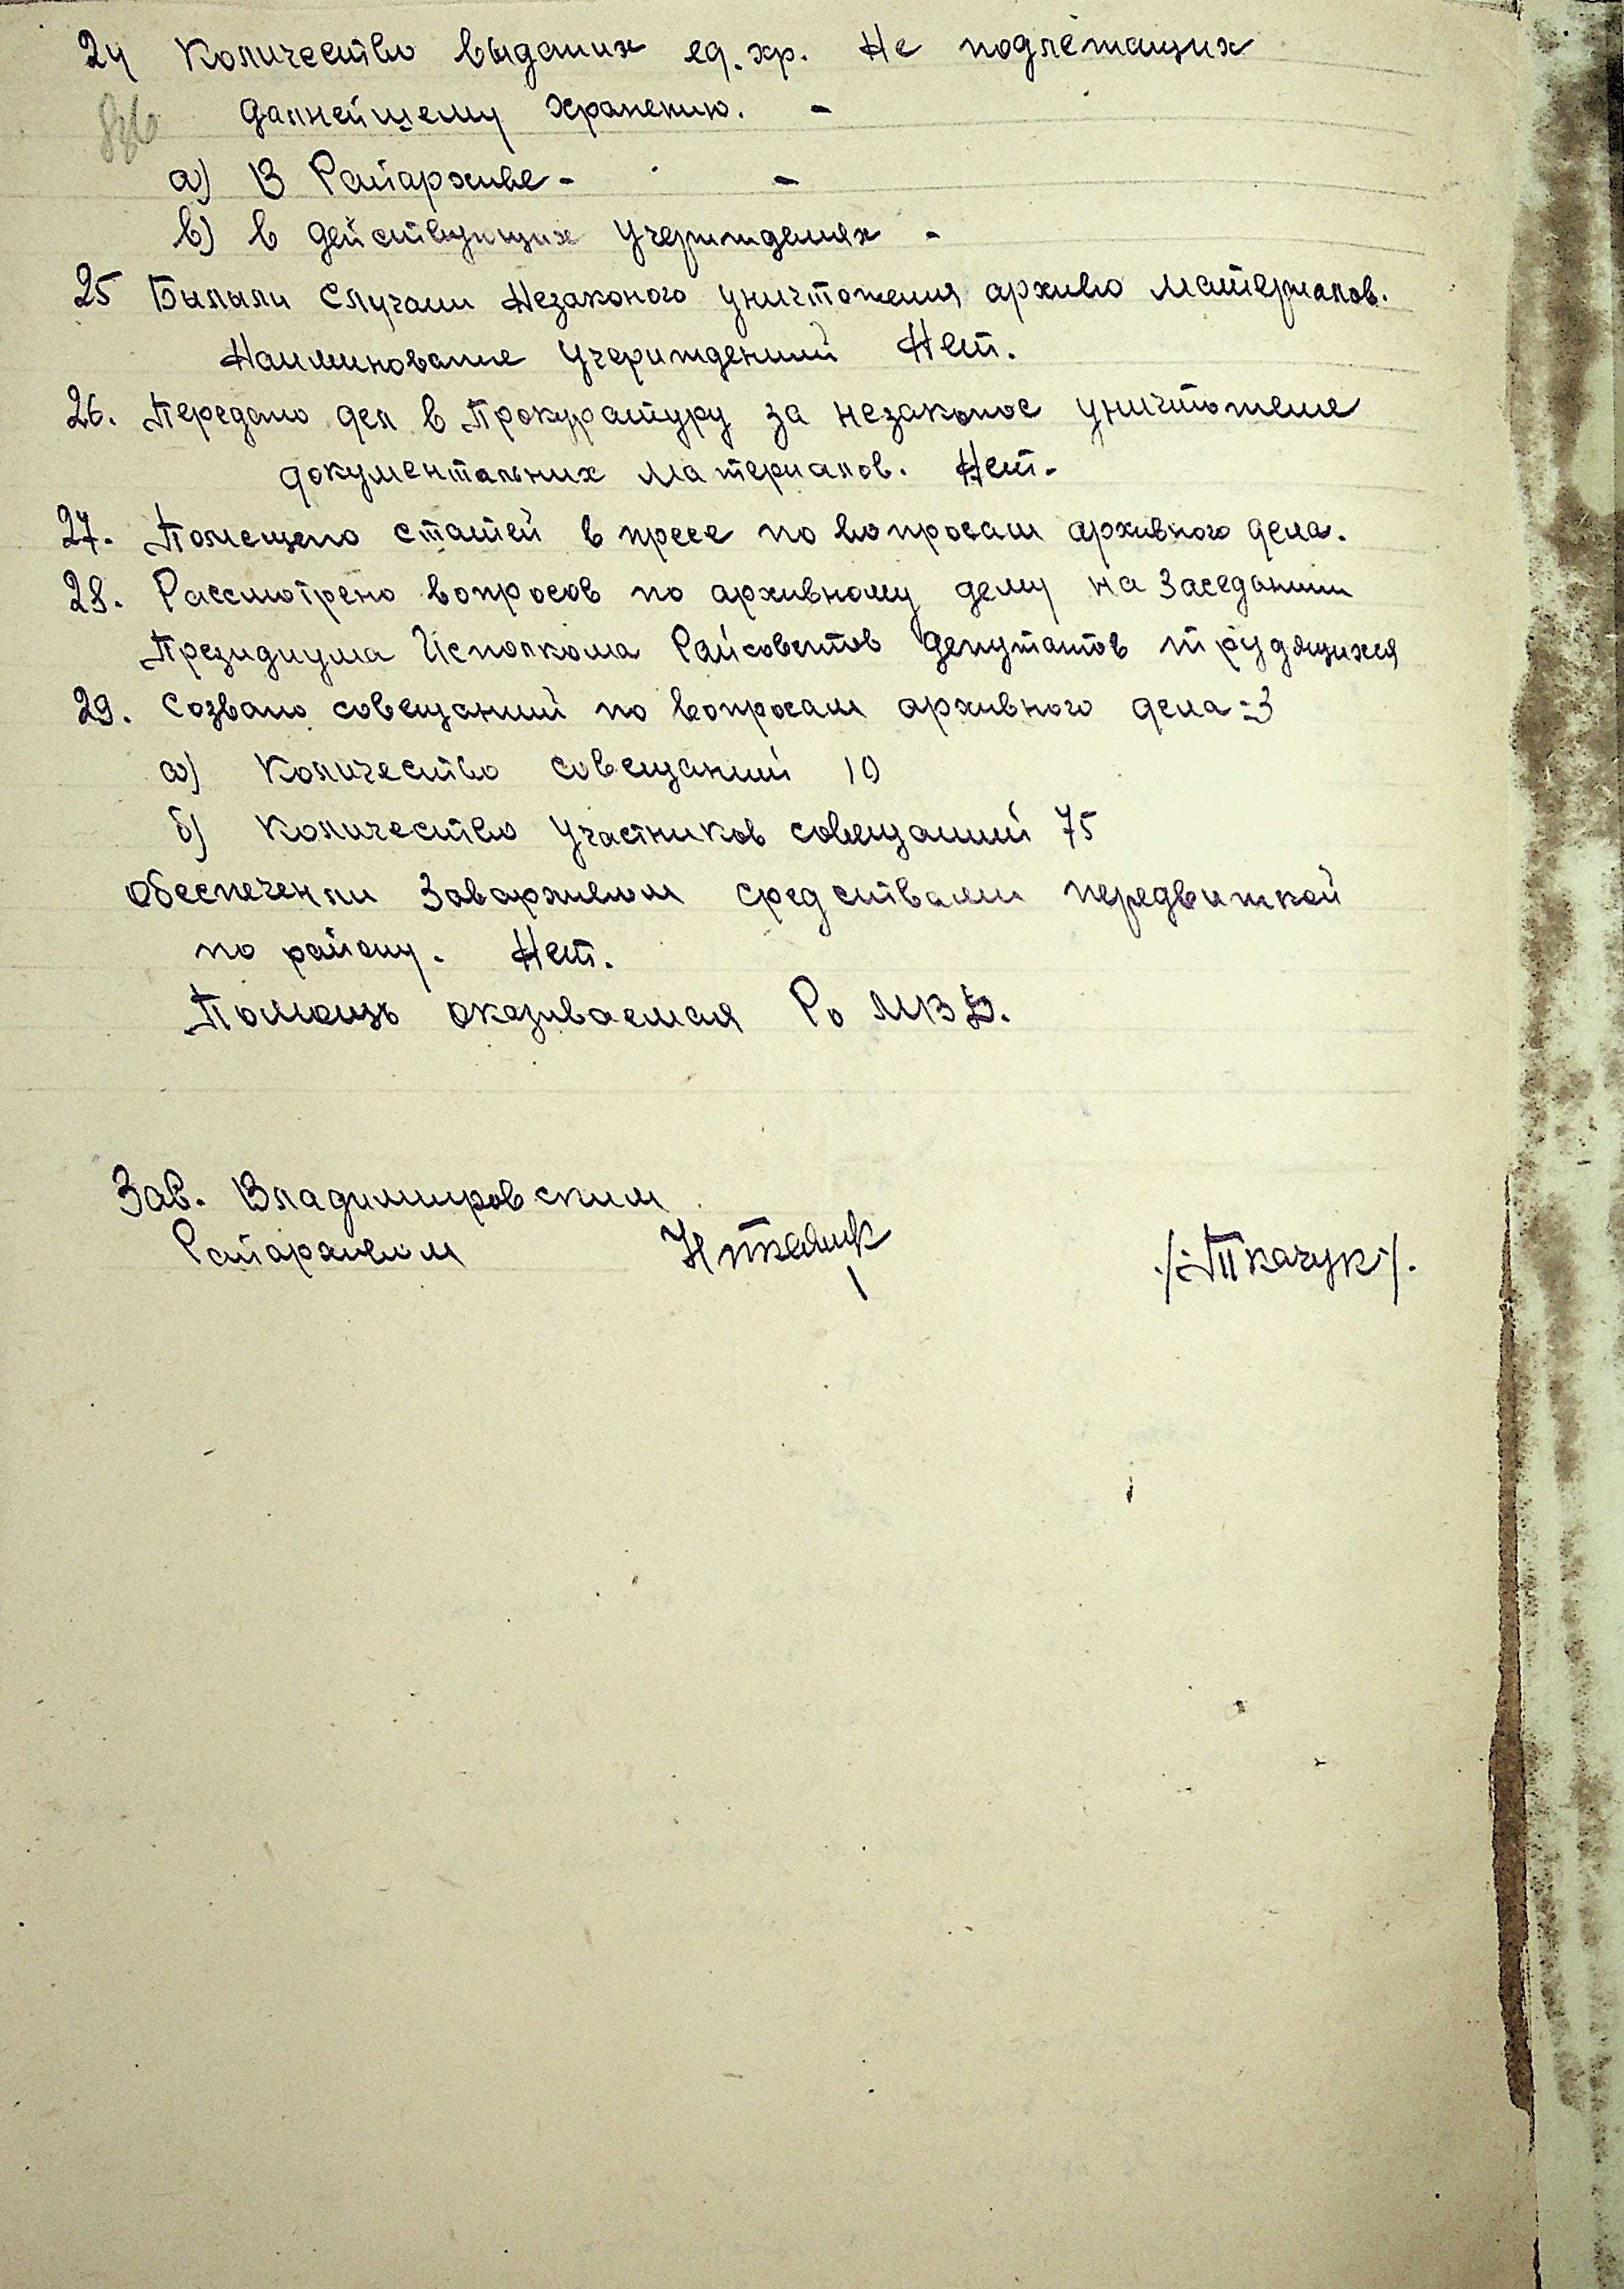 24 Количество выданих ед. хр. Не подлежащих
далнейшему хранению. -
а) В Райархиве - -
в) в действующих учереждениях -
25 Былыли случаии Незаконого уничтожения архиво материалов.
Наиминование учережденний Нет.
26. Передано дел в Прокурратуру за незаконое уничтожение
документальних материалов. Нет.
27. Помещено статей в пресе по вопросам архивного дела.
28. Рассмотрено вопросов по архивному делу на Заседании
Президиума Исполкома Райсоветов Депутатов трудящихся
29. Созвано совещаний по вопросам архивного дела = 3
а) Количество совещаний 10
б) Количество участников совещаний 75
Обеспечен ли Завархивом средствами передвижкой
по району. Нет.
Помощь оказиваемая Ро МВД.
Зав. Владимировским
Райархивом /:Ткачук:/.